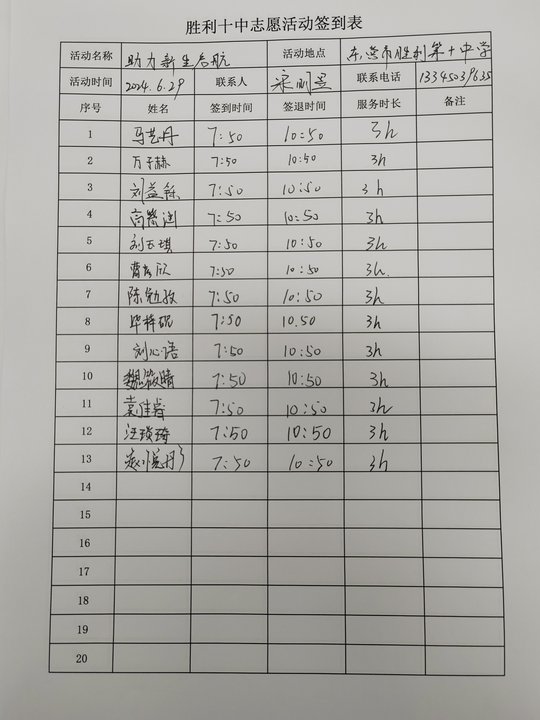 胜利十中志愿活动签到表
活动名称 助力新生启航 活动地点 东营市胜利第十中学
活动时间 2024.6.29 联系人 联系电话 13345039635
序号 姓名 签到时间 签退时间 服务时长 备注
1 马艺丹 7:50 10:50 3h
2 万子赫 7:50 10:50 3h
3 刘益铄 7:50 10:50 3h
4 7:50 10:50 3h
5 刘玉琪 7:50 10:50 3h
6 7:50 10:50 3h.
7 陈勉孜 7:50 10:50 3h
8 毕梓砚 7:50 10.50 3h
9 刘心语 7:50 10:50 3h
10 魏筱晴 7:50 10:50 3h
11 袁佳睿 7:50 10:50 3h
12 汪琐琦 7:50 10:50 3h
13 7:50 10:50 3h
14
15
16
17
18
19
20